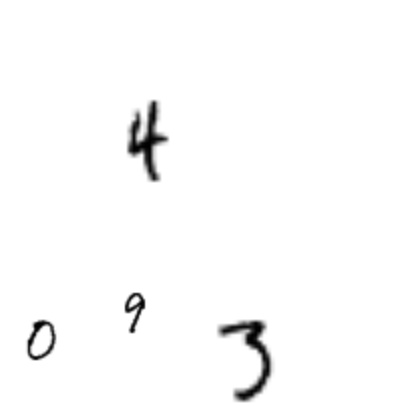 4
0 9 3